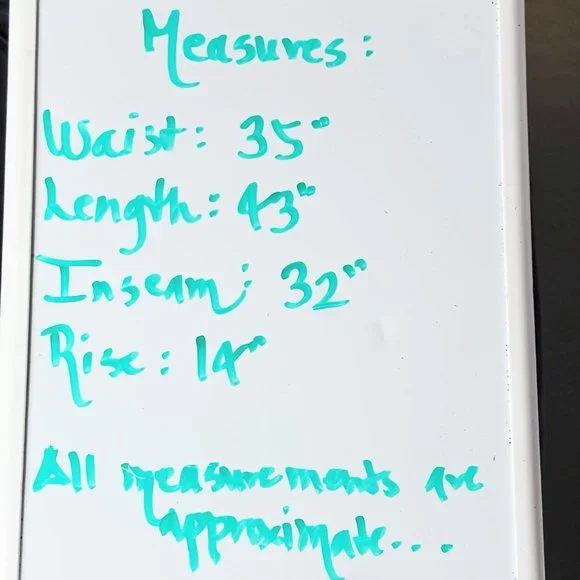 Measures:
Waist: 35"
Length: 43"
Inseam: 32"
Rise: 14"
All measurements are
approximate...